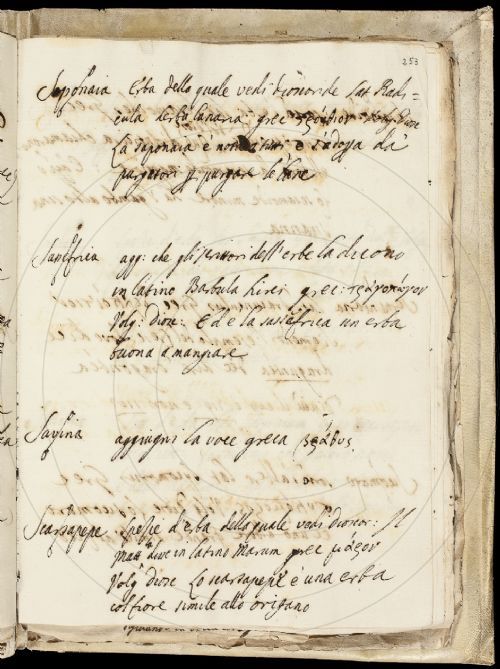 253
Saponaia Erba della quale vedi Dioscoride Lat Radi=
cula Herba lanaria grec στρούθιον Volg. Diosc
La saponaia è nota e s'adopa da
purgatori p purgare le lane
Sassefrica agg: che gli scrittori dell'erbe la dicono
in latino Barbula hirci grec: τράγοπώγον
Volg: diosc: Ed e la sassefrica un erba
buona a mangiare
Savina aggiugni la voce greca βράθυς
Scarsapepe spezie d'erba della quale vedi dioscor: Il
Matt dice in latino Marum grec μάρον
Volg: diosc Lo scarsapepe è una erba
col fiore simile allo origano